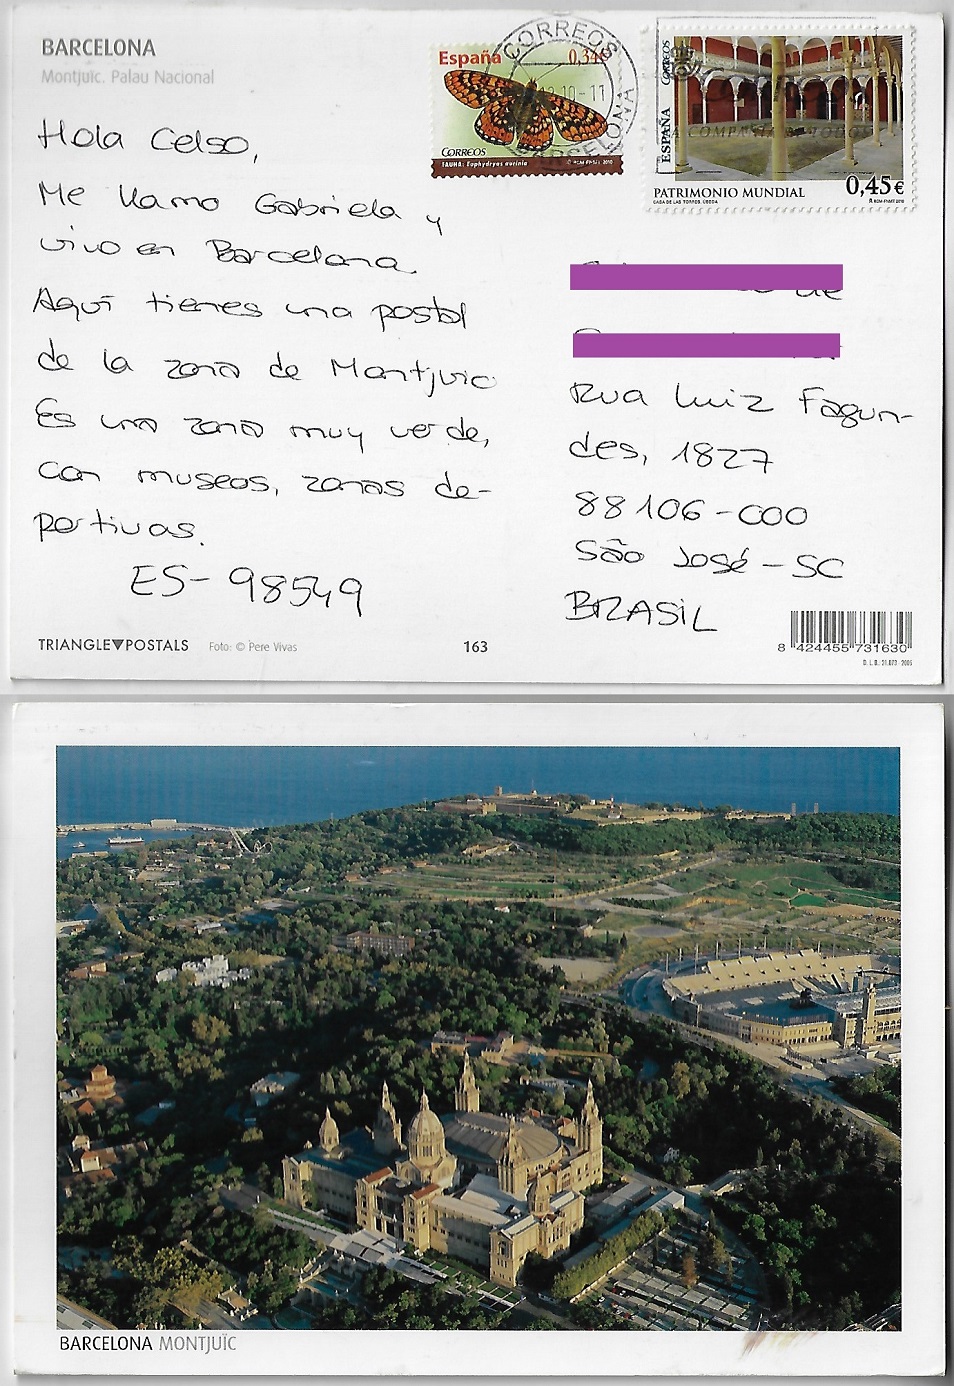 BARCELONA
Montjuïc. Palau Nacional
Hola Celso,
Me llamo Gabriela y
vivo en Barcelona.
Aquí tienes una postal
de la zona de Montjuic
Es una zona muy verde,
con museos, zonas de-
portivas.
ES-98549
TRIANGLE▼POSTALS
Foto: © Pere Vivas
163
España
0,34€
CORREOS
FAUNA: Euphydryas aurinia
© RCM-FNMT, 2010
CORREOS
10-11
BARCELONA
ESPAÑA CORREOS
PATRIMONIO MUNDIAL
0,45€
CASA DE LAS TORRES, ÚBEDA
RCM-FNMT 2010
de
Rua Luiz Fagun-
des, 1827
88106-000
São José - SC
BRASIL
8 424455 731630
BARCELONA MONTJUÏC